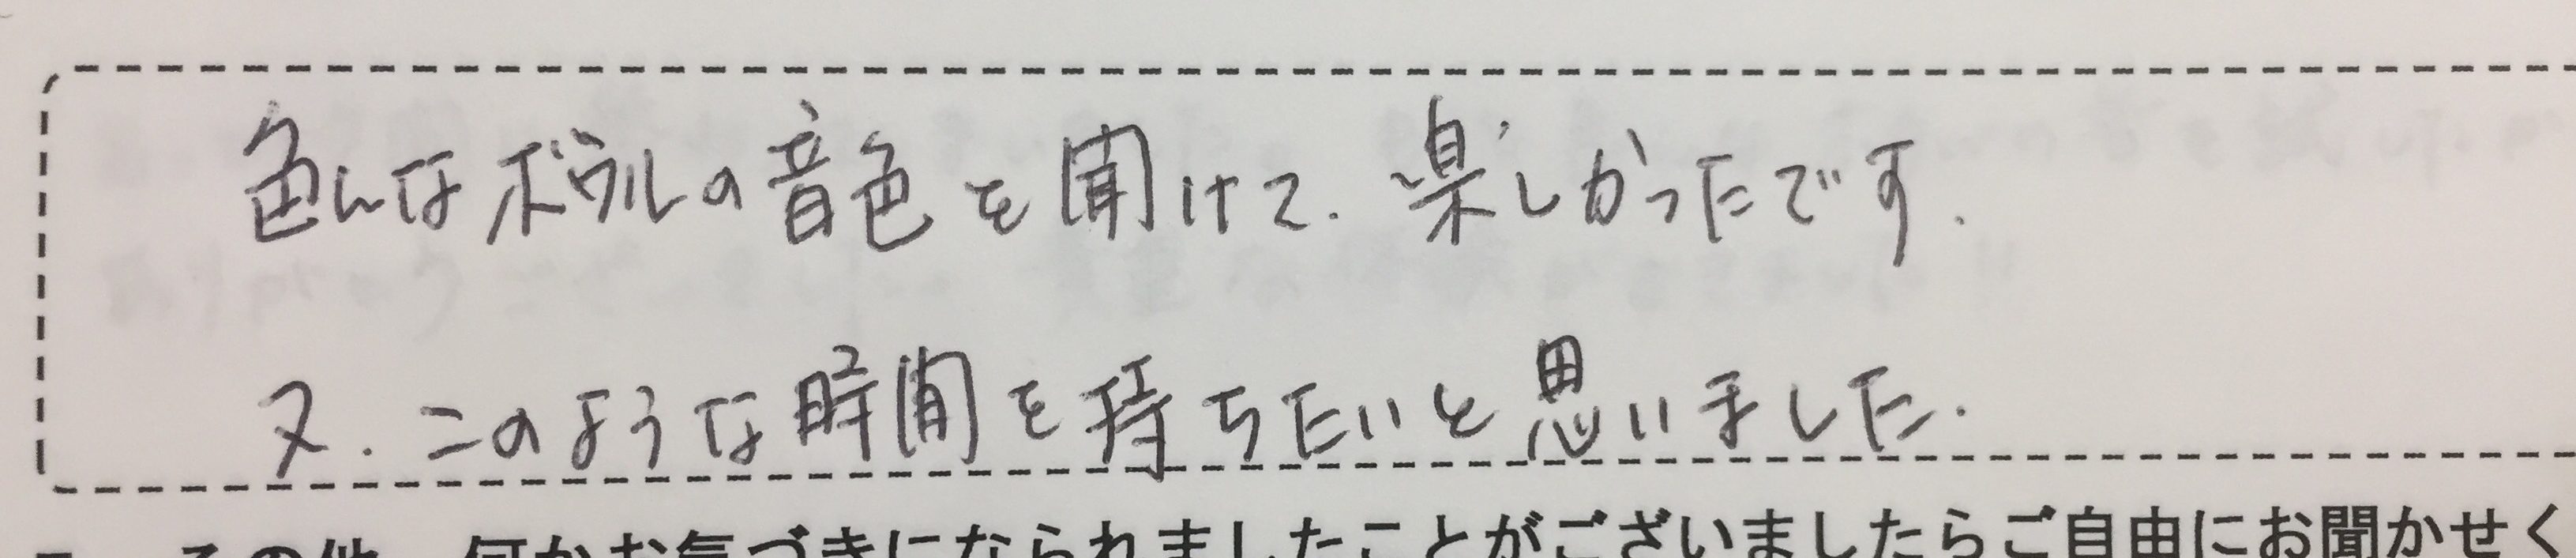 色んなボウルの音色を聞けて、楽しかったです。
又、このような時間を持ちたいと思いました。
その他、何かお気づきになられましたことがございましたらご自由にお聞かせく